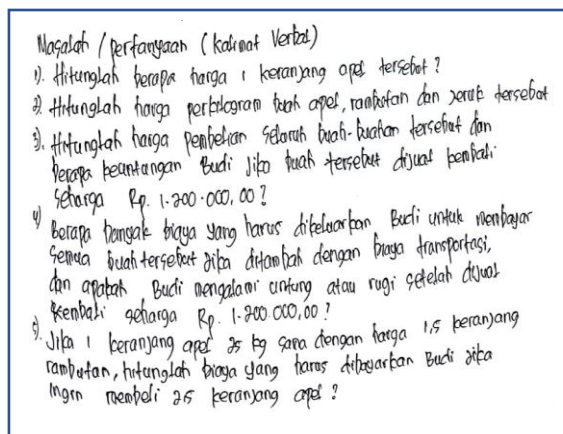 Masalah / pertanyaan ( kalimat Verbal )
1). Hitunglah berapa harga 1 keranjang apel tersebut ?
2). Hitunglah harga perkilogram buah apel, rambutan dan jeruk tersebut
3). Hitunglah harga pembelian seluruh buah-buahan tersebut dan
berapa keuntungan Budi Jika buah tersebut dijual kembali
seharga Rp. 1.200.000,00 ?
4) Berapa banyak biaya yang harus dikeluarkan Budi untuk membayar
semua buah tersebut jika ditambah dengan biaya transportasi,
dan apakah Budi mengalami untung atau rugi setelah dijual
kembali seharga Rp. 1.200.000,00 ?
5). Jika 1 keranjang apel 25 kg sama dengan harga 1,5 keranjang
rambutan, hitunglah biaya yang harus dibayarkan Budi jika
ingin membeli 25 keranjang apel ?